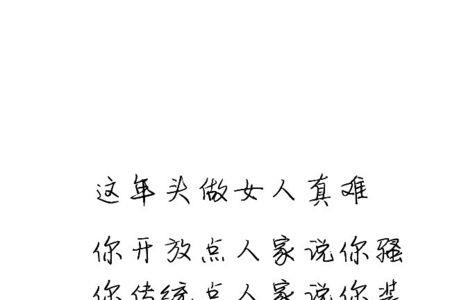 这年头做女人真难
你开放点人家说你骚
你传统点人家说你装